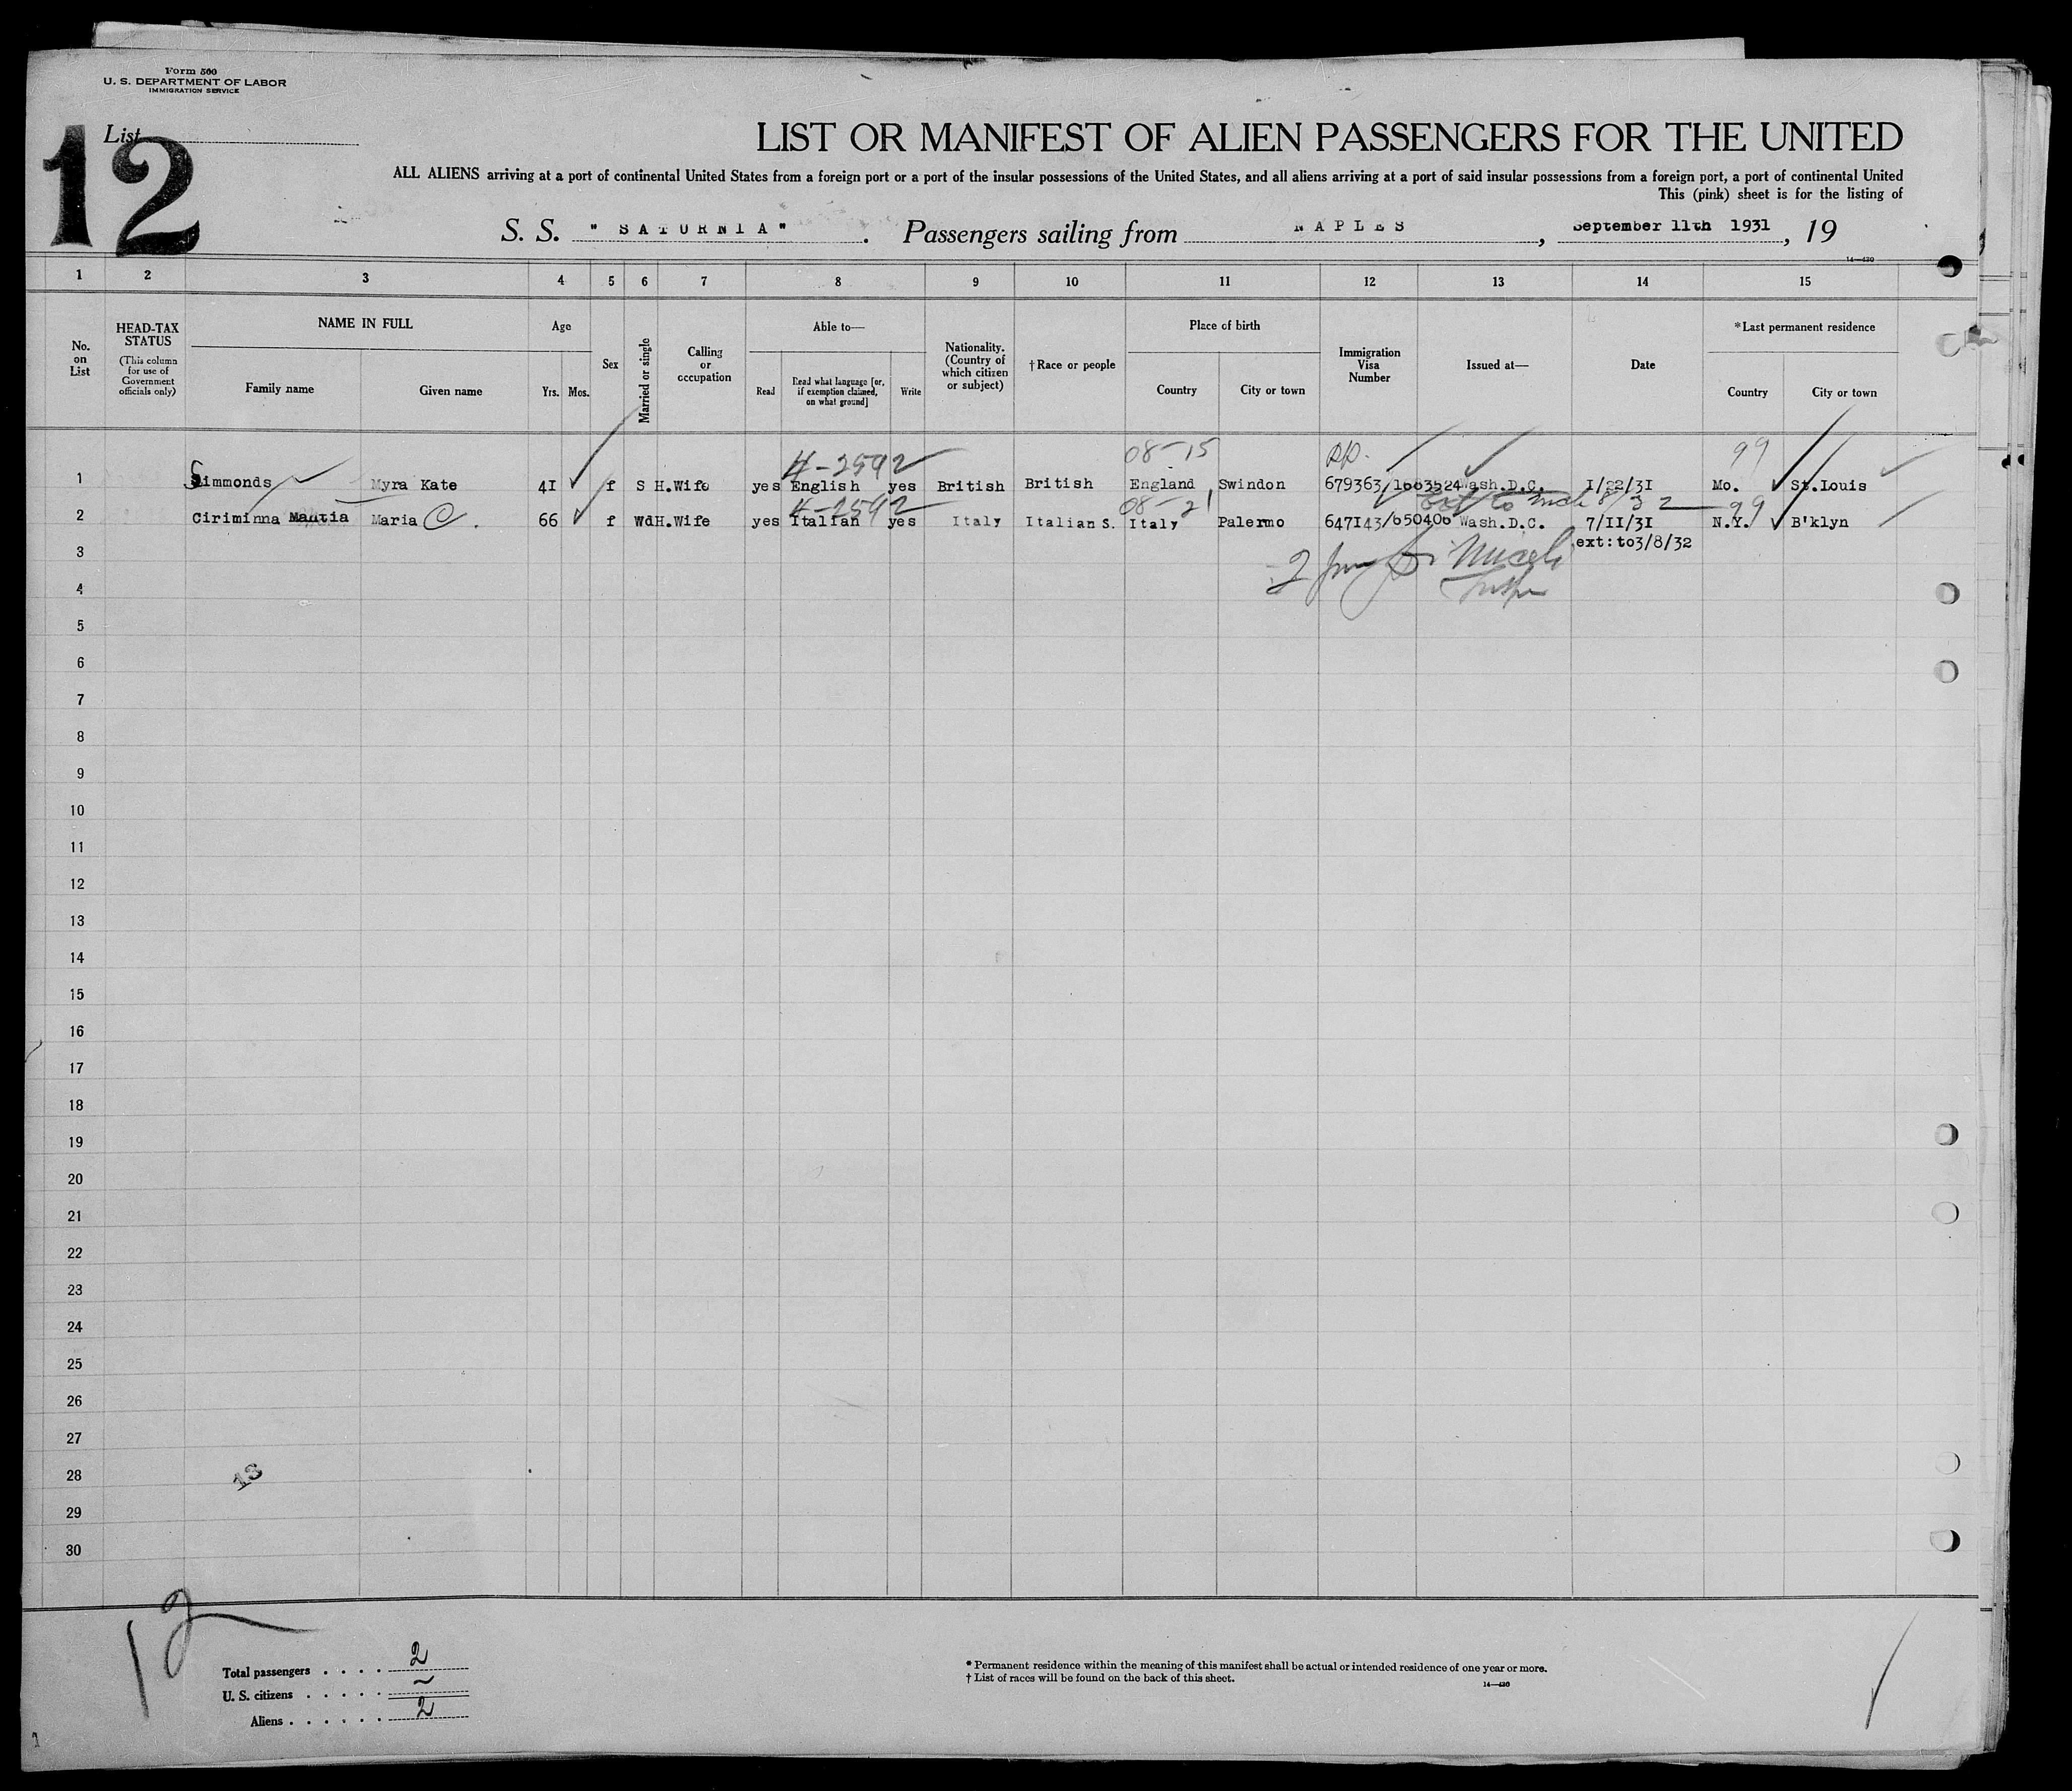 Form 500
U. S. DEPARTMENT OF LABOR
IMMIGRATION SERVICE
List
12
LIST OR MANIFEST OF ALIEN PASSENGERS FOR THE UNITED
ALL ALIENS arriving at a port of continental United States from a foreign port or a port of the insular possessions of the United States, and all aliens arriving at a port of said insular possessions from a foreign port, a port of continental United
This (pink) sheet is for the listing of
S. S. "SATURNIA". Passengers sailing from NAPLES, September 11th 1931, 19
14—430
1 2 3 4 5 6 7 8 9 10 11 12 13 14 15
No. on List
HEAD-TAX STATUS (This column for use of Government officials only)
NAME IN FULL
Family name Given name
Age
Yrs. Mos.
Sex
Married or single
Calling or occupation
Able to—
Read Read what language [or, if exemption claimed, on what ground] Write
Nationality. (Country of which citizen or subject)
†Race or people
Place of birth
Country City or town
Immigration Visa Number
Issued at—
Date
*Last permanent residence
Country City or town
4-2592 08-15 99
1 Simmonds Myra Kate 41 f S H.Wife yes English yes British British England Swindon 679363/1663524 Wash.D.C. 1/22/31 Mo. St.Louis
4-2592 08-21 99
2 Ciriminna Mantia Maria C. 66 f Wd H.Wife yes Italian yes Italy Italian S. Italy Palermo 647143/650406 Wash.D.C. 7/11/31 N.Y. B'klyn
3 ext:to3/8/32
4
5
6
7
8
9
10
11
12
13
14
15
16
17
18
19
20
21
22
23
24
25
26
27
28
13
29
30
12
Total passengers . . . . 2
U. S. citizens . . . . . ~
Aliens . . . . . . 2
* Permanent residence within the meaning of this manifest shall be actual or intended residence of one year or more.
† List of races will be found on the back of this sheet.
14—430